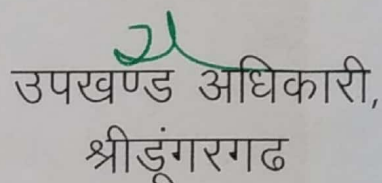 उपखण्ड अधिकारी,
श्रीडूंगरगढ